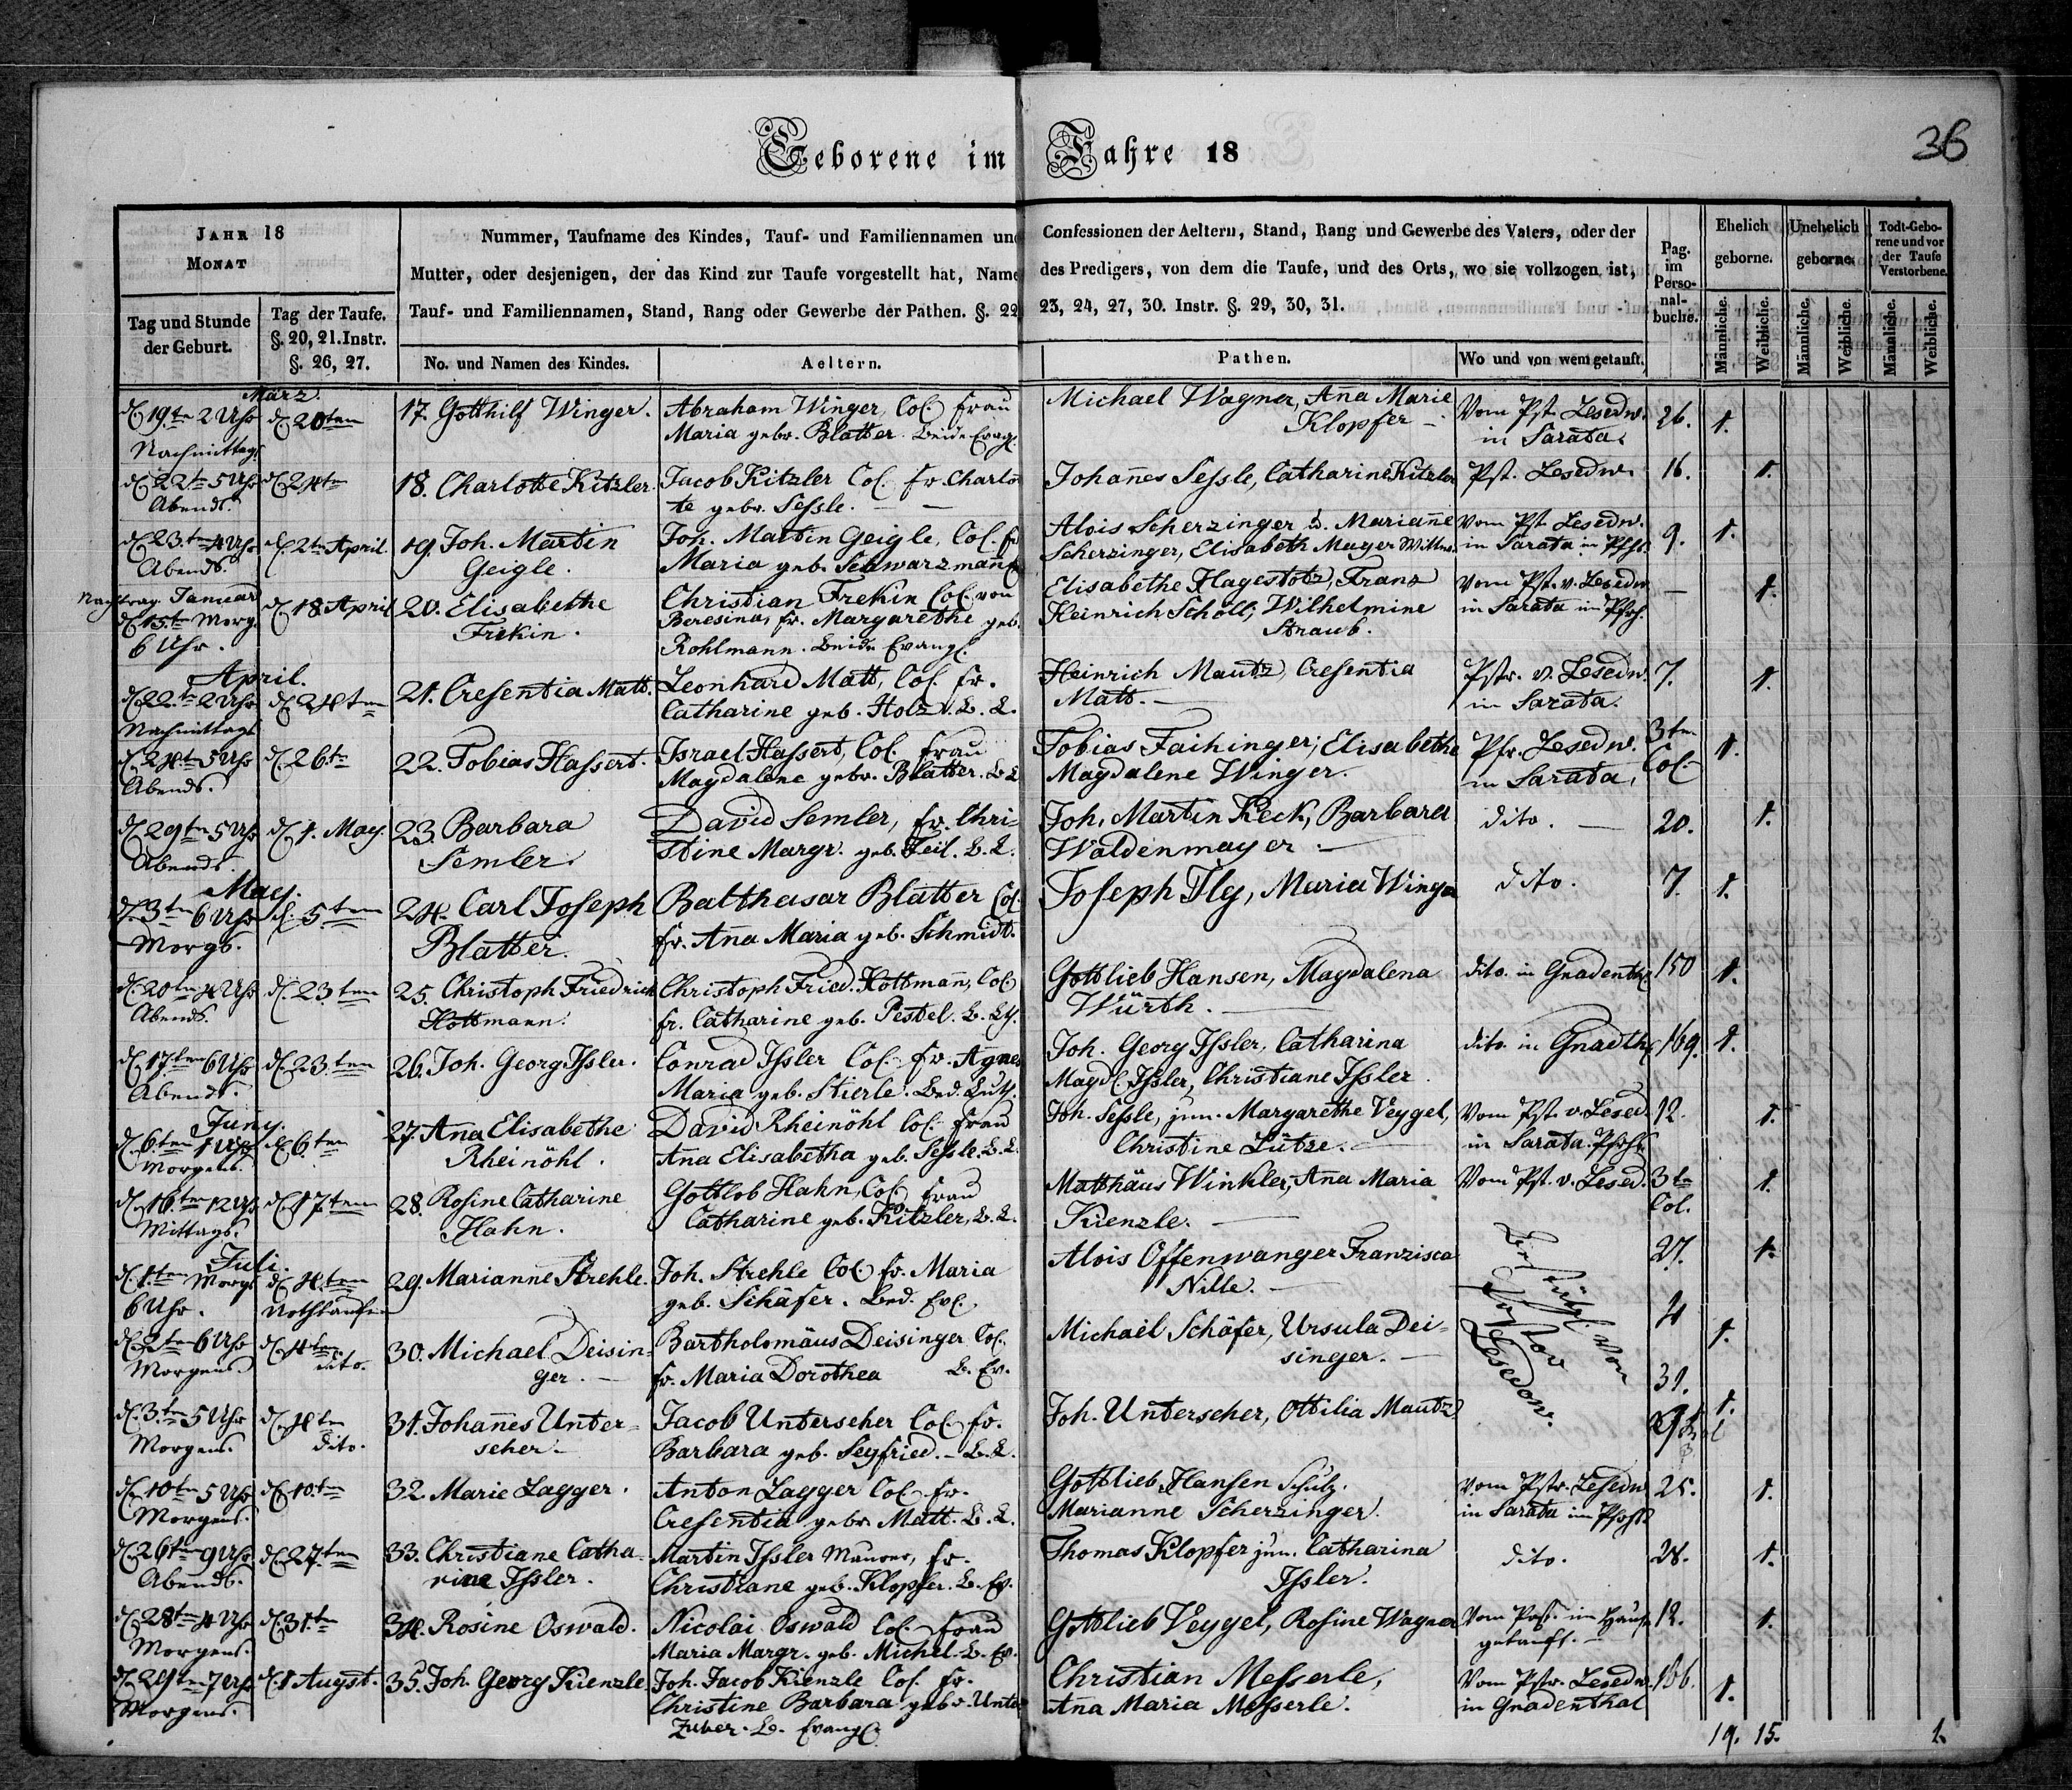 36
Geborene im Jahre 18
JAHR 18
MONAT
Tag und Stunde der Geburt.
Tag der Taufe. §. 20, 21. Instr. §. 26, 27.
Nummer, Taufname des Kindes, Tauf- und Familiennamen und Confessionen der Aeltern, Stand, Rang und Gewerbe des Vaters, oder der
Mutter, oder desjenigen, der das Kind zur Taufe vorgestellt hat, Name des Predigers, von dem die Taufe, und des Orts, wo sie vollzogen ist,
Tauf- und Familiennamen, Stand, Rang oder Gewerbe der Pathen. §. 22 23, 24, 27, 30. Instr. §. 29, 30, 31.
No. und Namen des Kindes.
Aeltern.
Pathen.
Wo und von wem getauft.
Pag. im Perso-nal-buche.
Ehelich geborne.
Unehelich geborne.
Todt-Gebo-rene und vor der Taufe Verstorbene.
Männliche. Weibliche. Männliche. Weibliche. Männliche. Weibliche.
März.
d. 19.ten 2 Uhr d. 20ten 17. Gotthilf Winger. Abraham Winger, Col. Frau Michael Wagner, Anna Marie Vom Pst. Lesedw. 26. 1.
Nachmittags Maria gebr. Blatter. Beide Evgl. Klopfer - in Sarata.
d. 22ten 5 Uhr d. 24ten 18. Charlotte Kitzler. Jacob Kitzler Col. Fr. Charlot Johannes Sessle, Catharine Kitzler Pst. Lesedw. 16. 1.
Abends. te gebr. Sessle.
d. 23.ten 4 Uhr d. 2ten April. 19. Joh. Martin Joh. Martin Geigle, Col. fr Alois Scherzinger u. Marianne Vom Pst Lesedw. 9. 1.
Abends. Geigle. Maria geb. Schwarzmann Scherzinger, Elisabeth Mayer Wittwe. in Sarata im Pfhs.
Nachtrag. Januar
d. 15.ten Morg. d. 18 April 20. Elisabethe Christian Frekin Col. von Elisabethe Hagestotz, Franz Vom Pst. v. Lesedw. — 1.
6 Uhr. Frekin. Beresina, fr. Margarethe geb. Heinrich Scholl; Wilhelmine in Sarata im Pfh.
Rohlmann. Beide Evangl. Straub.
April.
d. 22.ten 2 Uhr d. 24ten 21. Cresentia Matt. Leonhard Matt, Col. Fr. Heinrich Mautz, Cresentia Pstr. v. Lesedw. 7. 1.
Nachmittags Catharine geb. Holz. B. L. Matt. - in Sarata.
d. 24ten 5 Uhr d. 26ten 22. Tobias Hassert. Israel Hassert, Col. Frau Tobias Faihinger; Elisabethe Pfr. Lesedw. 3ten 1.
Abends. Magdalene gebr. Blatter. B. L Magdalene Winger. in Sarata, Col.
d. 29ten 5 Uhr d. 1. May. 23. Barbara David Semler, Fr. Chri- Joh. Martin Keck, Barbara dito. — 20. 1.
Abends. Semler. stine Margr. geb. Feil. B. L. Waldenmayer -
May.
d. 3ten 6 Uhr d. 5.ten 24. Carl Joseph Balthasar Blatter Col. Joseph Ily, Maria Winger dito. 7. 1.
Morgs. Blatter. fr. Anna Maria geb. Schmidt.
d. 20ten 4 Uhr d. 23ten 25. Christoph Friedrich Christoph Fried. Hottmann, Col. Gottlieb Hansen, Magdalena dito. in Gnadenthl. 150 1.
Abends. Hottmann. fr. Catharine geb. Pestel. B. Lth. Würth.
d. 17.ten 6 Uhr d. 23.ten 26. Joh. Georg Issler. Conrad Issler Col. Fr. Agnes Joh. Georg Issler, Catharina dito in Gnadthl. 169. 1.
Abends. Maria geb. Stierle. Bed. Luth. Magdl. Issler, Christiane Issler.
Juny.
d. 6ten 1 Uhr d. 6ten 27. Ana Elisabethe David Rheinöhl Col. Frau Joh. Sessle, jun. Margarethe Veygel, Vom Pst. v. Lesed. 12. 1.
Morgens. Rheinöhl. Anna Elisabetha geb. Sessle. B. L. Christine Lütze. in Sarata Pfhs.
d. 16.ten 12 Uhr d. 17ten 28. Rosine Catharine Gottlob Hahn, Col. Frau Matthäus Winkler, Ana Maria Vom Pst. v. Lesed. 3ten 1.
Mittags. Hahn. Catharine geb. Kitzler, B. L. Kienzle. Col.
Juli.
d. 1.ten Morgs d. 4ten 29. Marianne Strehle. Joh. Strehle Col. fr. Maria Alois Offenwanger Franzisca 27. 1.
6 Uhr. Nothtaufen geb. Schäfer. Bed. Evl. Nille. -
d. 2ten 6 Uhr d. 4ten 30. Michael Deisin- Bartholomäus Deisinger Col. Michael Schäfer, Ursula Dei- 4 1.
Morgens. dito. ger. fr. Maria Dorothea B. Ev. singer. - 31.
von Pastor Lesedow.
d. 3.ten 5 Uhr d. 4ten 31. Johannes Unter- Jacob Unterseher Col. fr. Joh. Unterseher, Ottilia Mautz. 1.
Morgens. dito. seher - Barbara geb. Seyfried. - B. L.
d. 10ten 5 Uhr d. 10.ten 32. Marie Lagger. Anton Lagger Col. Fr. Gottlieb Hansen Schulz. Vom Pstr. Lesedw. 25. 1.
Morgens. Cresentia gebr. Matt. B. L. Marianne Scherzinger. in Sarata im Pfhs.
d. 26ten 9 Uhr d. 27.ten 33. Christiane Catha- Martin Issler Maurer, Fr. Thomas Klopfer jun. Catharina dito. 28. 1.
Abends. rine Issler. Christiane geb. Klopfer. B. Ev. Issler.
d. 28ten 4 Uhr d. 31.ten 34. Rosine Oswald. Nicolai Oswald Col. Frau Gottlieb Veygel, Rosine Wagner Vom Past. im Hause 12. 1.
Morgens. Maria Margr. geb. Michel. B. Ev. getauft. -
d. 29ten 7 Uhr d. 1 Augst. 35. Joh. Georg Kienzle Joh. Jacob Kienzle Col. Fr. Christian Messerle, Vom Pstr. Lesedw. 166. 1.
Morgens. Christine Barbara gebr. Unter Anna Maria Messerle. in Gnadenthal
zuber. B. Evangl.
19. 15. 1.